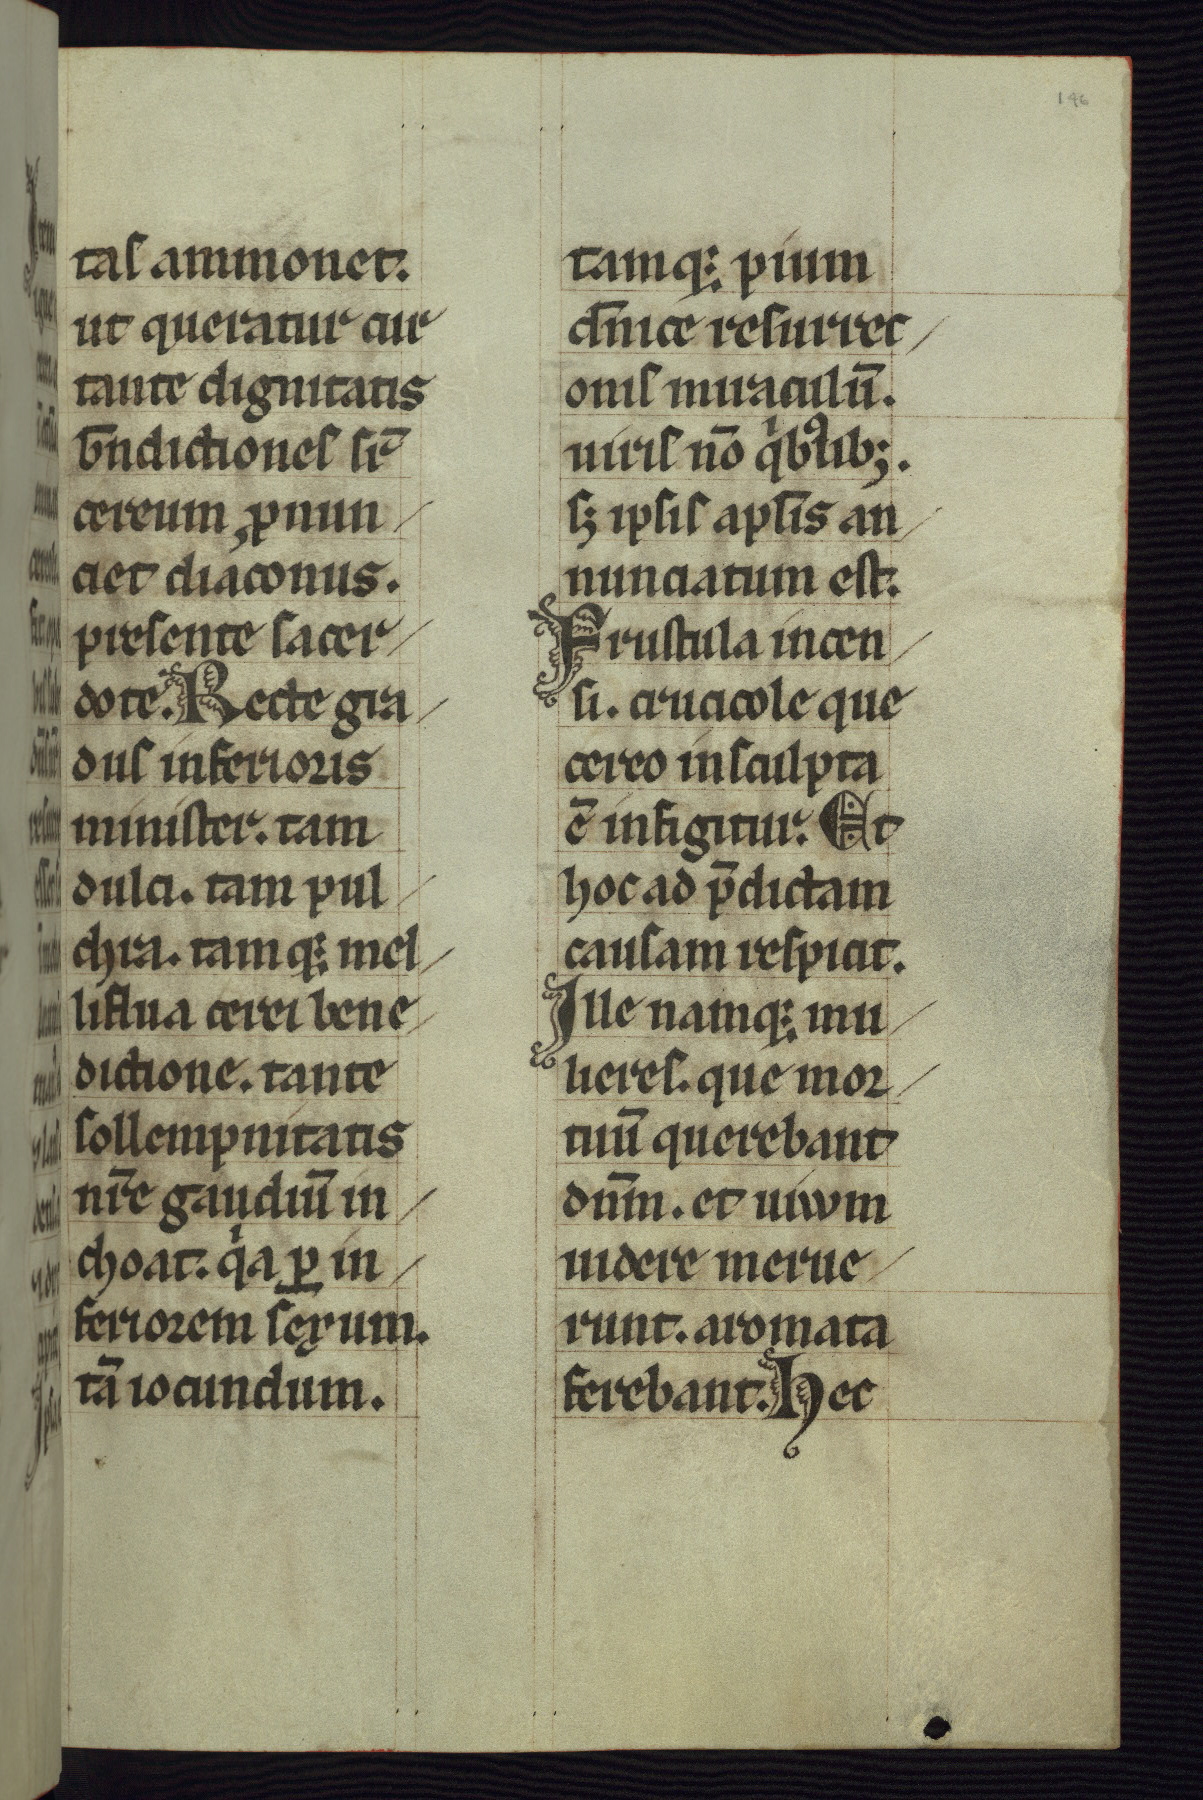 tas ammonet.
ut queratur cur
tante dignitatis
bn̄dictiones sūt
cereum ꝓnun
ciet diaconus.
presente sacer
dote. Recte gra
dus inferioris
minister. tam
dulci. tam pul
chra. tamq; mel
liflua cerei bene
dictione. tante
sollempnitatis
nr̄e gaudiū in
choat. qⁱa ꝑ in
feriorem sexum.
tā iocundum.
tamq; pium
dn̄ice resurrec
onis miraculū.
uiris nō qⁱbꝰlib;.
s; ipsis apl̄is an
nunciatum est.
Frustula incen
si. crucicole que
cereo insculpta
ē infigitur. Et
hoc ad p̄dictam
causam respicit.
Ille namq; mu
lieres. que mor
tuū querebant
dn̄m. et uiuum
uidere merue
runt. aromata
ferebant. Hec
146